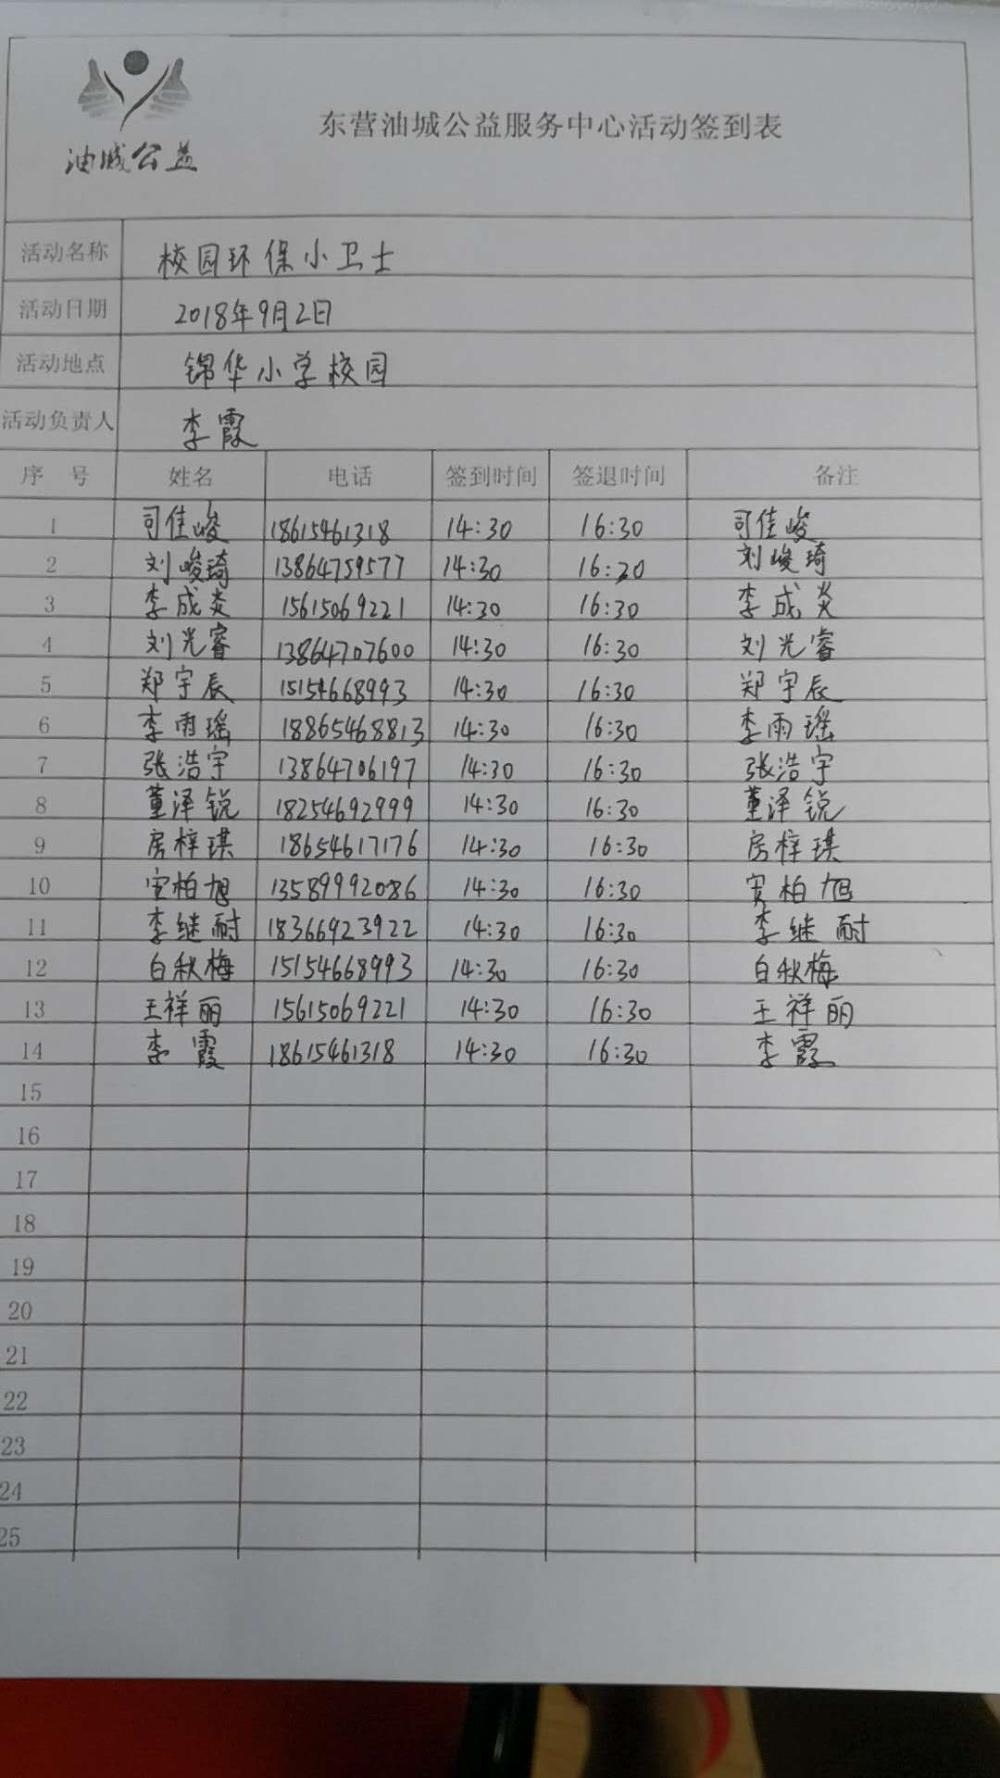 油城公益
东营油城公益服务中心活动签到表
活动名称 校园环保小卫士
活动日期 2018年9月2日
活动地点 锦华小学校园
活动负责人 李霞
序号 姓名 电话 签到时间 签退时间 备注
1 司佳峻 18615461318 14:30 16:30 司佳峻
2 刘峻琦 13864759577 14:30 16:20 刘峻琦
3 李成炎 15615069221 14:30 16:30 李成炎
4 刘光睿 13864707600 14:30 16:30 刘光睿
5 郑宇辰 15154668993 14:30 16:30 郑宇辰
6 李雨瑶 18865468813 14:30 16:30 李雨瑶
7 张浩宇 13864706197 14:30 16:30 张浩宇
8 董泽锐 18254692999 14:30 16:30 董泽锐
9 房梓琪 18654617176 14:30 16:30 房梓琪
10 柏旭 13589992086 14:30 16:30 柏旭
11 李继耐 18366923922 14:30 16:30 李继耐
12 白秋梅 15154668993 14:30 16:30 白秋梅
13 王祥丽 15615069221 14:30 16:30 王祥丽
14 李霞 18615461318 14:30 16:30 李霞
15
16
17
18
19
20
21
22
23
24
25